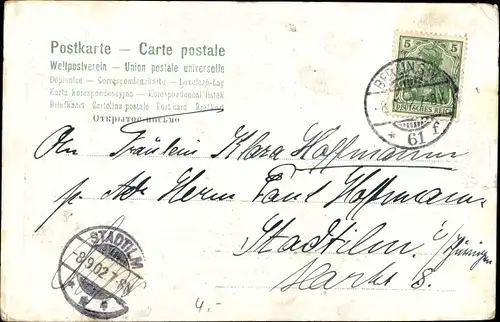 Postkarte — Carte postale
Weltpostverein — Union postale universelle
Dopisnice — Correspondenzkarte — Levelező-Lap
Karta korespondencyjna — Korespondenční lístek
Briefkaart Cartolina postale Post card Brefkort
Открытое письмо
5 5
DEUTSCHES REICH
BERLIN S.W.
* 61 f
An Fräulein Klara Hoffmann
p. Adr. Herrn Paul Hoffmann
Stadtilm i/Thüringen
Markt 8.
STADTILM
-8.9.02.7-8N
* * *
4.-